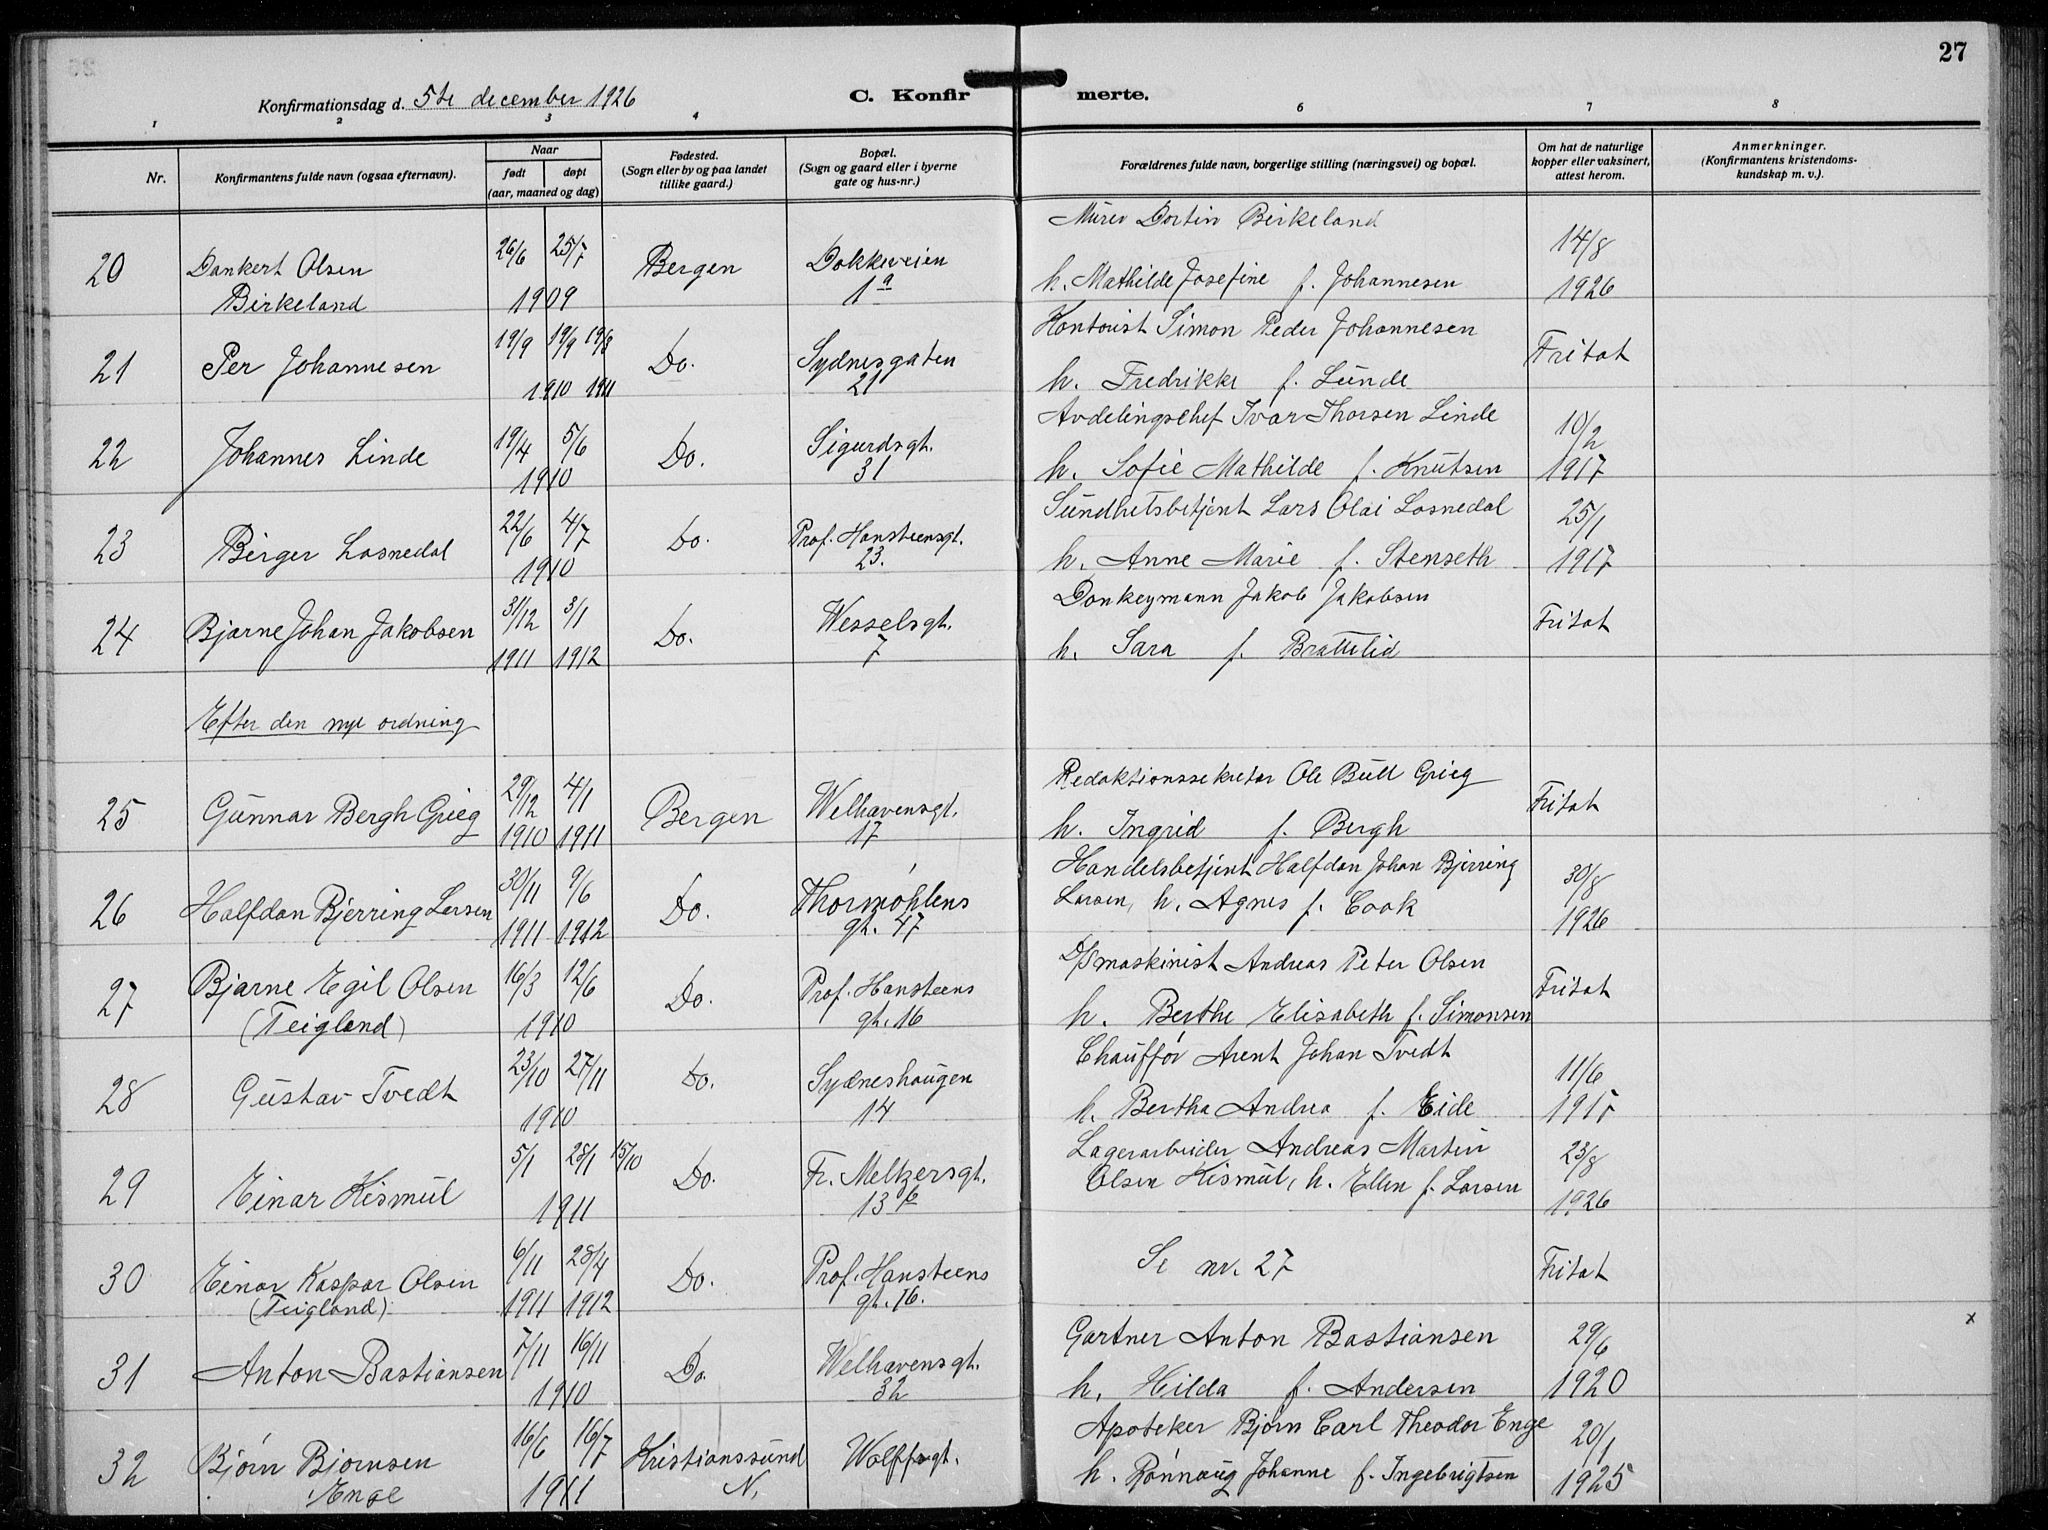 27
Konfirmationsdag d. 5te december 1926
C. Konfirmerte.
1 2 3 4 5 6 7 8
Nr.
Konfirmantens fulde navn (ogsaa efternavn).
Naar
født døpt
(aar, maaned og dag)
Fødested.
(Sogn eller by og paa landet
tillike gaard.)
Bopæl.
(Sogn og gaard eller i byerne
gate og hus-nr.)
Forældrenes fulde navn, borgerlige stilling (næringsvei) og bopæl.
Om hat de naturlige
kopper eller vaksinert,
attest herom.
Anmerkninger.
(Konfirmantens kristendoms-
kundskap m. v.).
Murer Dortin Birkeland
20 Dankert Olsen 26/6 25/7 Bergen Dokkeveien 14/8
Birkeland 1909 1a h. Mathilde Josefine f. Johannesen 1926
Kontorist Simon Peder Johannesen
21 Per Johannesen 19/9 19/9 19/8 Do. Sydnesgaten Fritat
1910 1911 21 h. Fredrikke f. Lunde
Avdelingschef Ivar Thorsen Linde
22 Johannes Linde 19/4 5/6 Do. Sigurdsgt. 10/2
1910 31 h. Sofie Mathilde f. Knutsen 1917
Sundhetsbetjent Lars Olai Losnedal
23 Birger Losnedal 22/6 4/7 Do. Prof. Hansteensgt. 25/1
1910 23. h. Anne Marie f. Stenseth 1917
Donkeymann Jakob Jakobsen
24 Bjarne Johan Jakobsen 31/12 3/1 Do. Wesselsgt. Fritat
1911 1912 7 h. Sara f. Brattelid
Efter den nye ordning
Redaktionssekretær Ole Bull Grieg
25 Gunnar Bergh Grieg 29/12 4/1 Bergen Welhavensgt. Fritat
1910 1911 17 h. Ingrid f. Bergh
Handelsbetjent Halfdan Johan Bjerring
26 Halfdan Bjerring Larsen 30/11 9/6 Do. Thormøhlens 30/8
1911 1912 gt. 47 Larsen, h. Agnes f. Cook 1926
D/Smaskinist Andreas Peter Olsen
27 Bjarne Egil Olsen 16/3 12/6 Do. Prof. Hansteens Fritat
(Teigland) 1910 gt. 16 h. Berthe Elisabeth f. Simonsen
Chauffør Arent Johan Tvedt
28 Gustav Tvedt 23/10 27/11 Do. Sydneshaugen 11/6
1910 14 h. Bertha Andrea f. Eide 1915
Lagerarbeider Andreas Martin
29 Einar Kismul 5/1 28/1 15/10 Do. Fr. Meltzersgt. 23/8
1911 13 b Olsen Kismul, h. Ellen f. Larsen 1926
30 Einar Kaspar Olsen 6/11 28/4 Do. Prof. Hansteens Se nr. 27 Fritat
(Teigland) 1911 1912 gt. 16.
Gartner Anton Bastiansen x
31 Anton Bastiansen 7/11 16/11 Do. Welhavensgt. 29/6
1910 32 h. Hilda f. Andersen 1920
Apoteker Bjørn Carl Theodor Enge
32 Bjørn Bjørnsen 16/6 16/7 Kristianssund Wolffsgt. 20/1
Enge 1911 N. h. Rønnaug Johanne f. Ingebrigtsen 1925